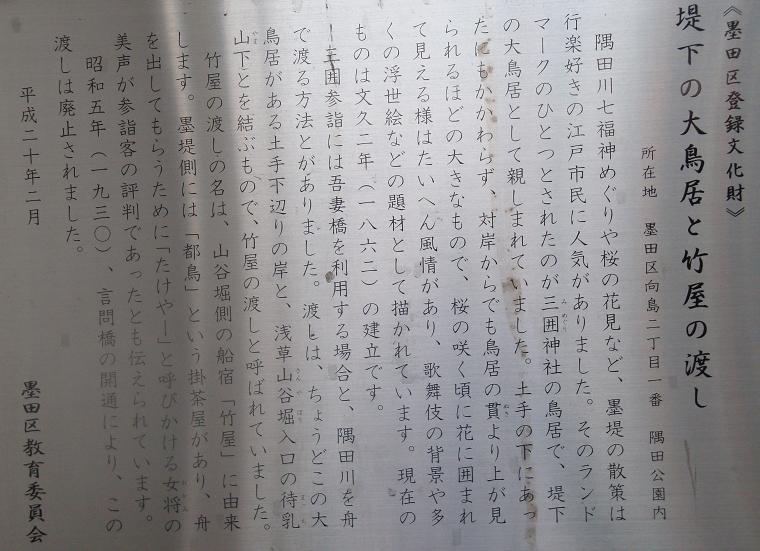 《墨田区登録文化財》
堤下の大鳥居と竹屋の渡し
所在地 墨田区向島二丁目一番 隅田公園内
隅田川七福神めぐりや桜の花見など、墨堤の散策は
行楽好きの江戸市民に人気がありました。そのランド
マークのひとつとされたのが三囲神社の鳥居で、堤下
の大鳥居として親しまれていました。土手の下にあっ
たにもかかわらず、対岸からでも鳥居の貫より上が見
られるほどの大きなもので、桜の咲く頃に花に囲まれ
て見える様はたいへん風情があり、歌舞伎の背景や多
くの浮世絵などの題材として描かれています。現在の
ものは文久二年(一八六二)の建立です。
三囲参詣には吾妻橋を利用する場合と、隅田川を舟
で渡る方法とがありました。渡しは、ちょうどこの大
鳥居がある土手下辺りの岸と、浅草山谷堀入口の待乳
山下とを結ぶもので、竹屋の渡しと呼ばれていました。
竹屋の渡しの名は、山谷堀側の船宿「竹屋」に由来
します。墨堤側には「都鳥」という掛茶屋があり、舟
を出してもらうために「たけやー」と呼びかける女将の
美声が参詣客の評判であったとも伝えられています。
昭和五年(一九三〇)、言問橋の開通により、この
渡しは廃止されました。
平成二十年二月
墨田区教育委員会